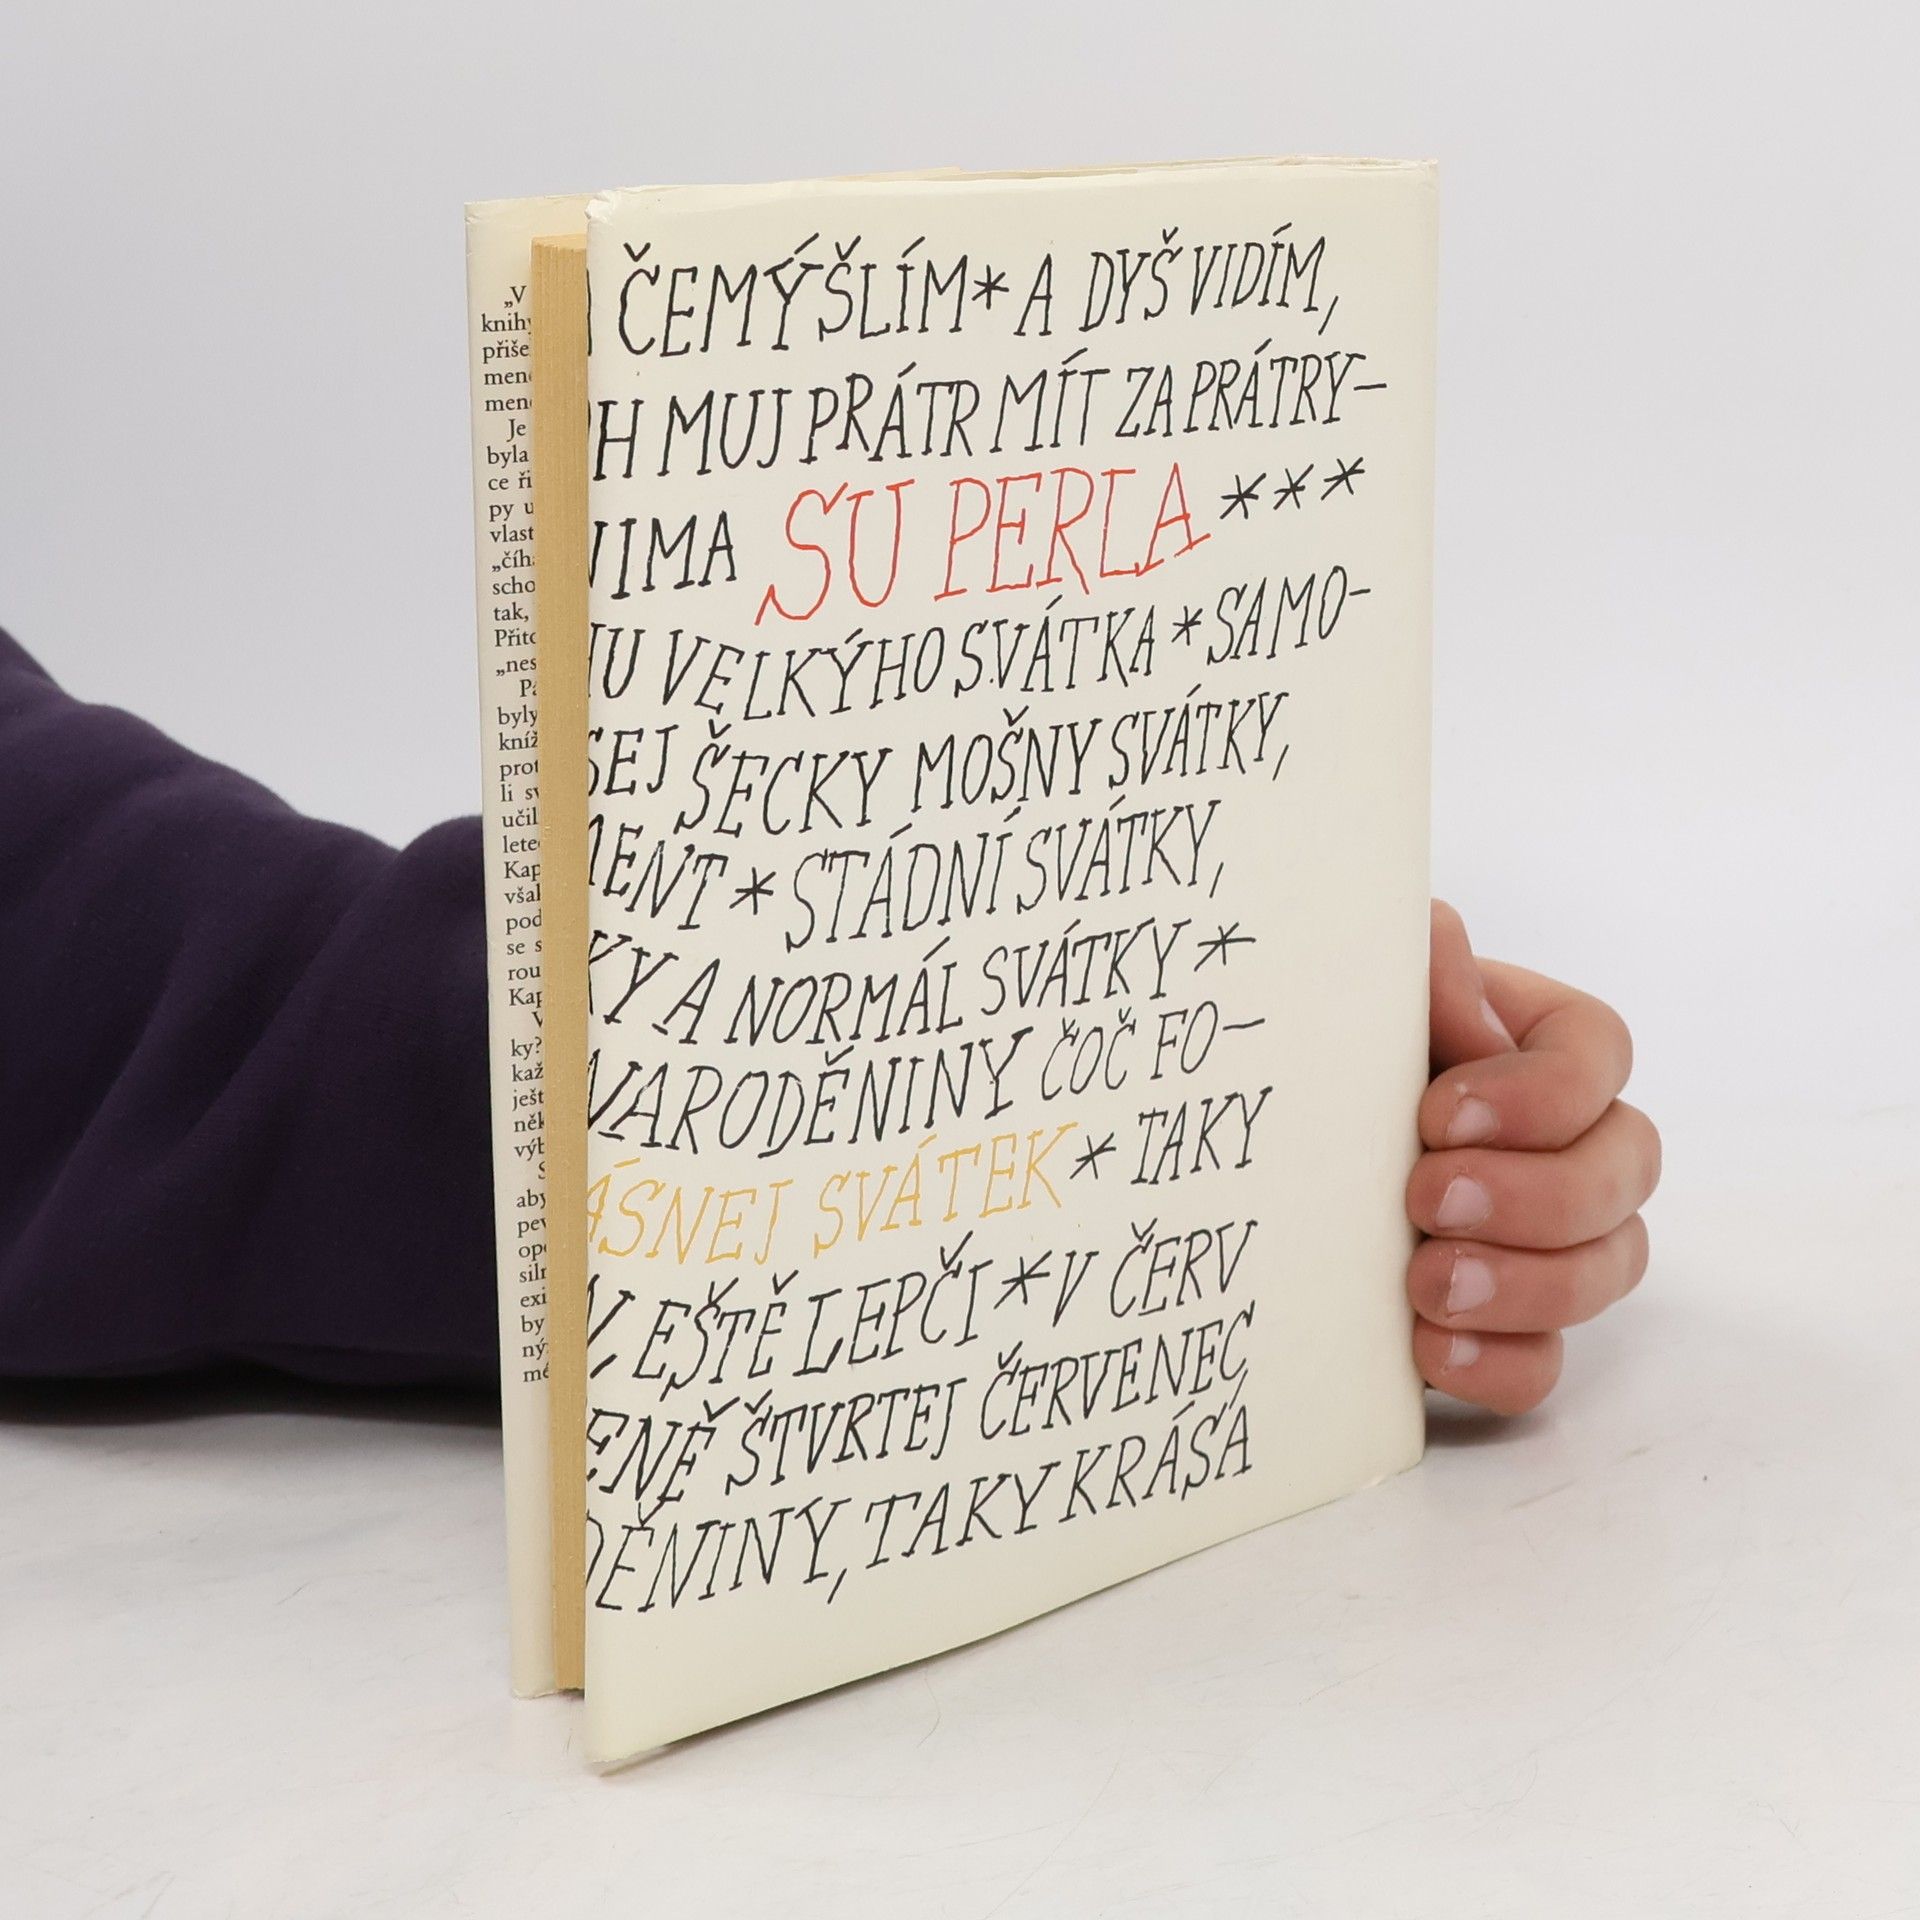 „V
knihy
přiše
men
men
Je
byla
ce ři
py u
vlast
„číh
scho
tak,
Přito
„nes
Pá
byly
kníž
prot
li sv
učil
lete
Kap
vša
pod
se s
rou
Kap
V
ky?
kaž
ješt
něk
výb
S
aby
pev
ope
siln
exi
by
ný
mé
ČEMÝŠLÍM * A DYŠ VIDÍM,
H MUJ PRÁTR MÍT ZA PRÁTRY–
NIMA SU PERLA ***
HU VELKÝHO SVÁTKA * SAMO–
SEJ ŠECKY MOŠNY SVÁTKY,
MENT * STÁDNÍ SVÁTKY,
KY A NORMÁL SVÁTKY *
NARODĚNINY ČOČ FO–
ÁSNEJ SVÁTEK * TAKY
EŠTĚ LEPČI * V ČERV
ENĚ ŠTVRTEJ ČERVENEC,
DĚNINY, TAKY KRÁSÁ